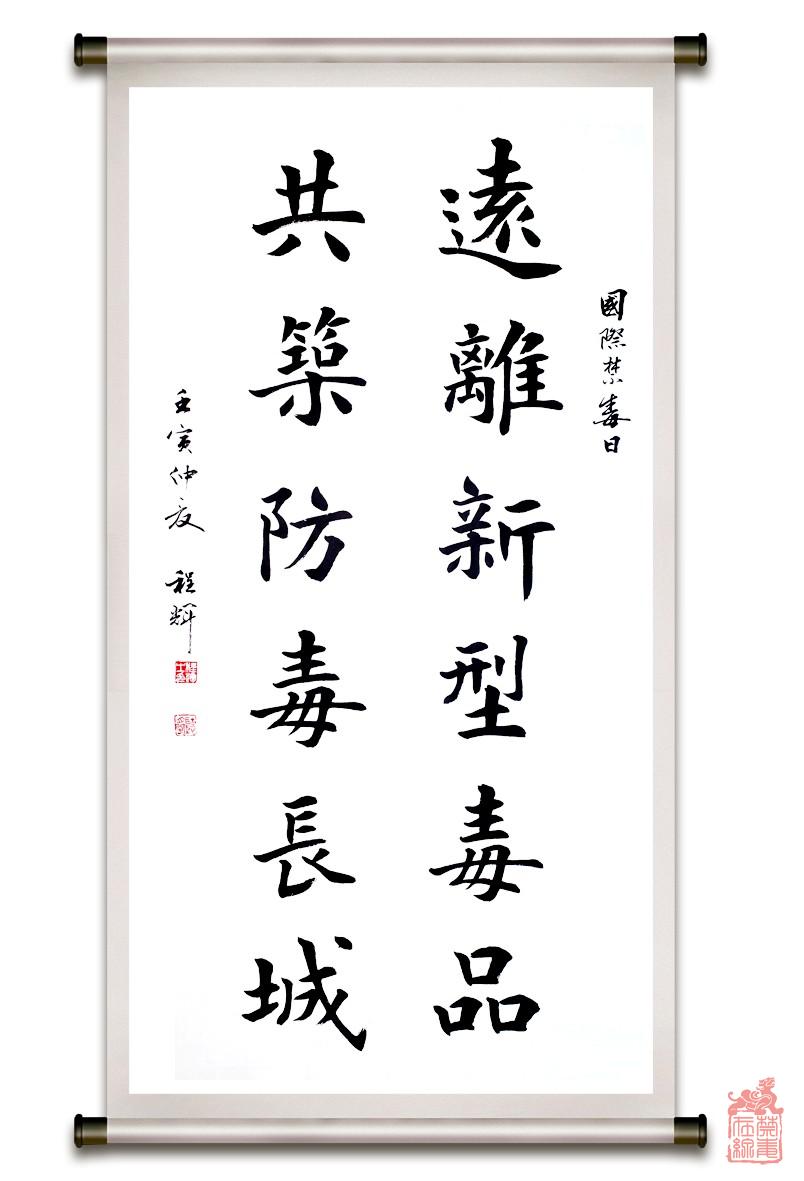 國際禁毒日
遠離新型毒品
共築防毒長城
壬寅仲夏 程輝
禁毒在線